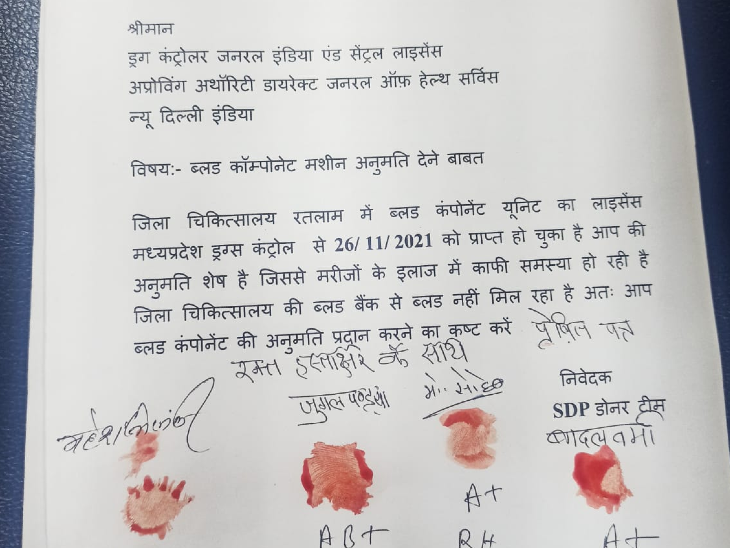 श्रीमान
ड्रग कंट्रोलर जनरल इंडिया एंड सेंट्रल लाइसेंस
अप्रोविंग अथॉरिटी डायरेक्ट जनरल ऑफ़ हेल्थ सर्विस
न्यू दिल्ली इंडिया
विषय:- ब्लड कॉम्पोनेट मशीन अनुमति देने बाबत
जिला चिकित्सालय रतलाम में ब्लड कंपोनेंट यूनिट का लाइसेंस
मध्यप्रदेश ड्रग्स कंट्रोल से 26/ 11/ 2021 को प्राप्त हो चुका है आप की
अनुमति शेष है जिससे मरीजों के इलाज में काफी समस्या हो रही है
जिला चिकित्सालय की ब्लड बैंक से ब्लड नहीं मिल रहा है अतः आप
ब्लड कंपोनेंट की अनुमति प्रदान करने का कष्ट करें प्रेषित पत्र
रक्त हस्ताक्षर के साथ
निवेदक
जुगल पण्ड्या
SDP डोनर टीम
बादल वर्मा
A+
AB+
RH
A+